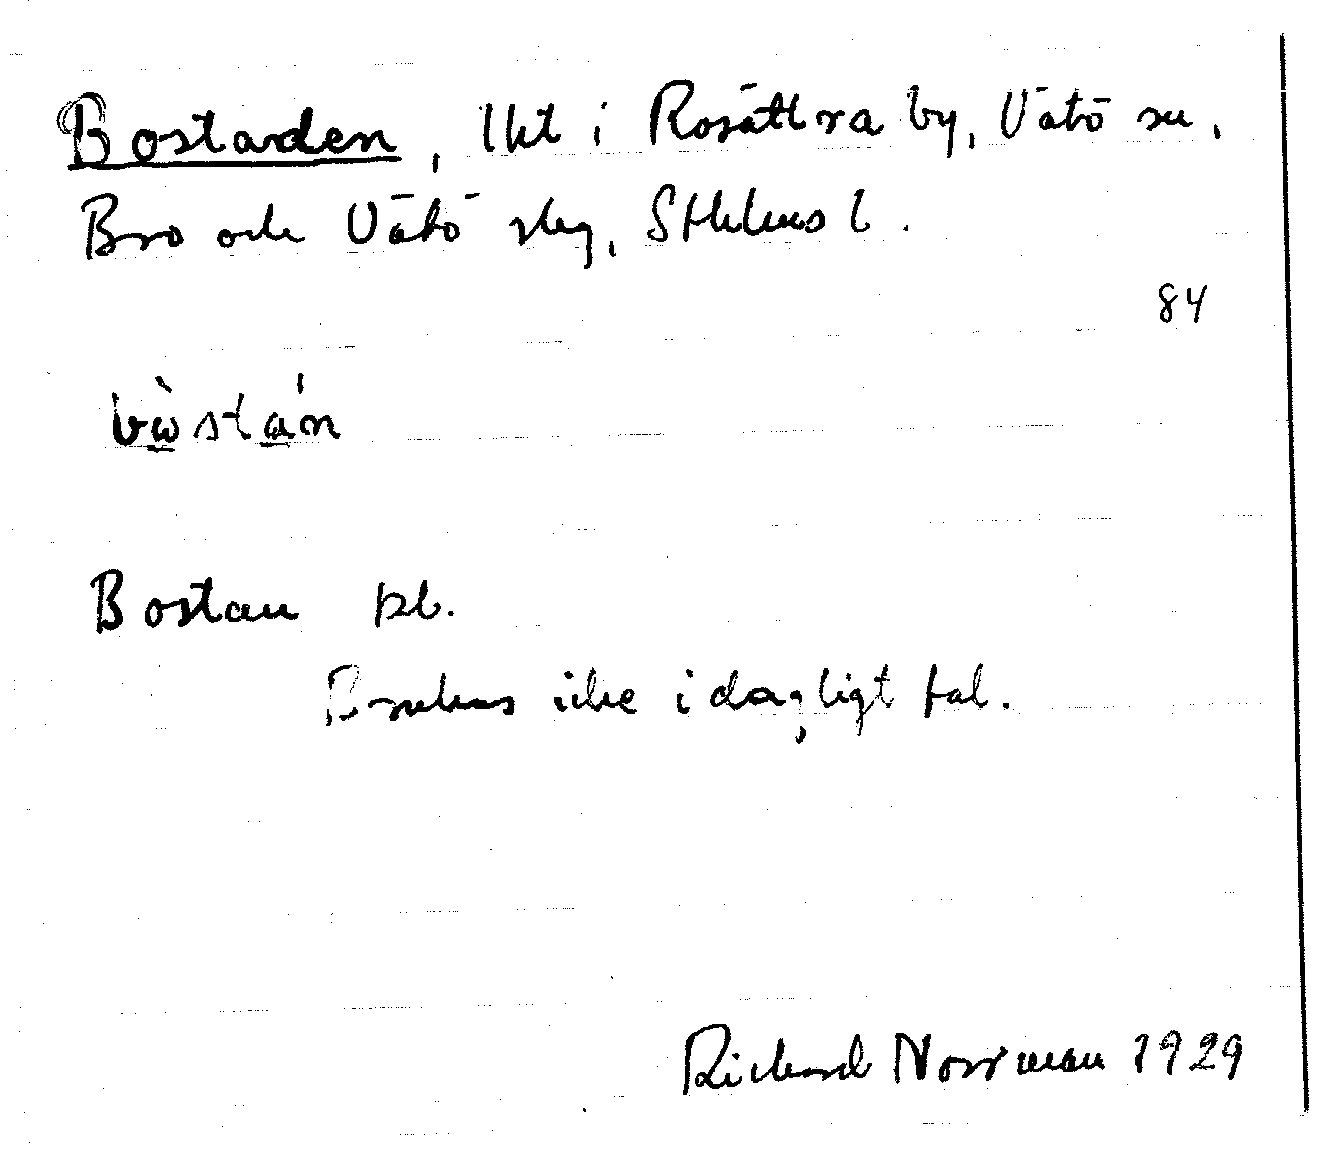 Bostarden, lkt i Rosättra by, Vätö sn,
Bro och Vätö skg, Sthlms l.
84
bòstán
Bostan pl.
Brukas icke i dagligt tal.
Richard Norrman 1929